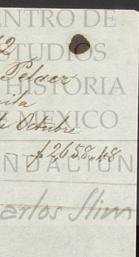 CENTRO DE
ESTUDIOS
2
Pelaez
DE HISTORIA
DE MEXICO
de Octubre
FUNDACIÓN
$ 2658.48
Carlos Slim